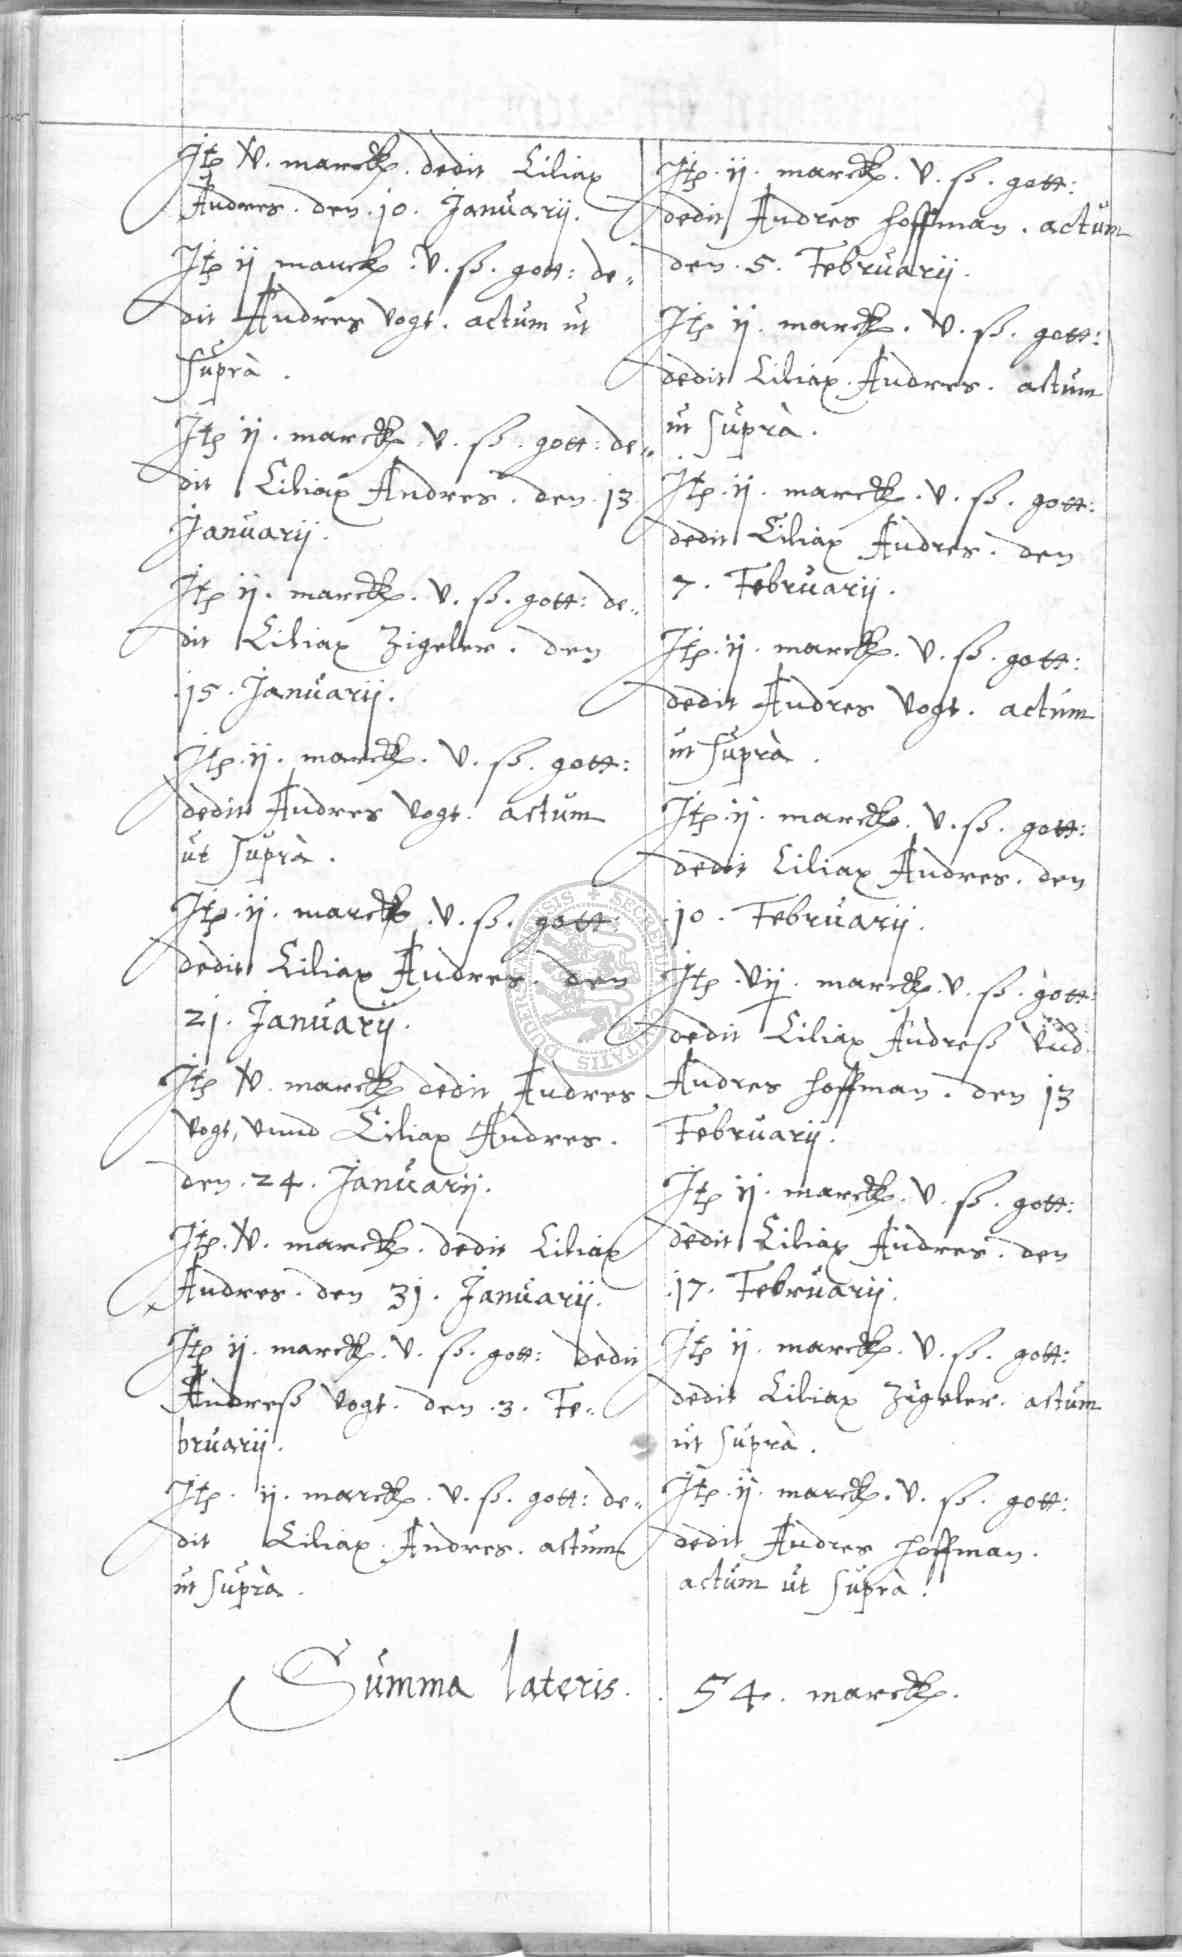 Itp v. marckℓ. dedit Ciliax
Andres. den 10. Januarij.
Itp ij marckℓ. v. ß. gott: de=
dit Andres Vogt. actum ut
supra.
Itp ij. marckℓ. v. ß. gott: de=
dit Ciliax Andres. den 13
Januarij.
Itp ij. marckℓ. v. ß. gott: de=
dit Ciliax Zigeler. den
15. Januarij.
Itp. ij. marckℓ. v. ß. gott:
dedit Andres Vogt. actum
ut supra.
Itp. ij. marckℓ. v. ß. gott:
dedit Ciliax Andres. den
21. Januarij.
Itp v. marckℓ dedit Andres
Vogt, vnnd Ciliax Andres.
den 24. Januarij.
Itp. v. marckℓ. dedit Ciliax
Andres. den 31. Januarij.
Itp ij. marckℓ. v. ß. gott: dedit
Andreß Vogt. den .3. Fe=
bruarij.
Itp. ij. marckℓ. v. ß. gott: de=
dit Ciliax Andres. actum
ut supra.
Itp. ij. marckℓ. v. ß. gott:
dedit Andres Hoffman. actum
den .5. Februarij.
Itp ij. marckℓ. v. ß. gott:
dedit Ciliax Andres. actum
ut supra.
Itp. ij. marckℓ. v. ß. gott:
dedit Ciliax Andres. den
7. Februarij.
Itp. ij. marckℓ. v. ß. gott:
dedit Andres Vogt. actum
ut supra.
Itp. ij. marckℓ. v. ß. gott:
dedit Ciliax Andres. den
10. Februarij.
Itp. vij. marckℓ. v. ß. gott:
dedit Ciliax Andreß vnd
Andres Hoffman. den 13
Februarij.
Itp ij. marckℓ. v. ß. gott:
dedit Ciliax Andres. den
17. Februarij.
Itp ij. marckℓ. v. ß. gott:
dedit Ciliax Zigeler. actum
ut supra.
Itp. ij. marckℓ. v. ß. gott:
dedit Andres Hoffman.
actum ut supra.
Summa lateris. 54. marckℓ.